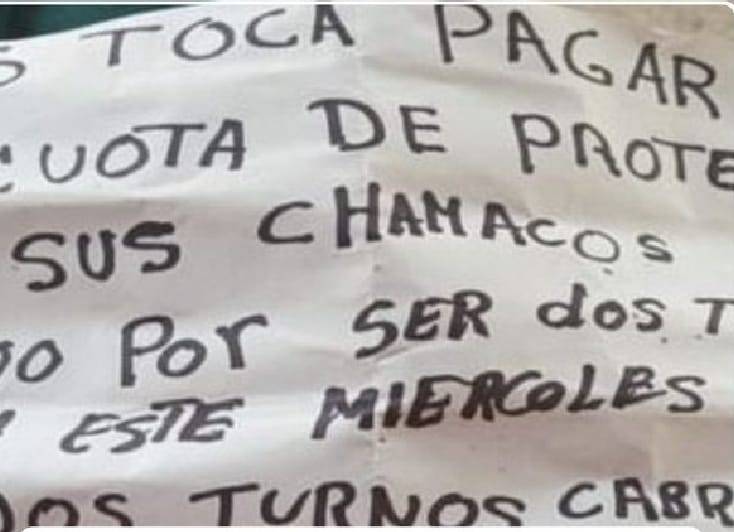 S TOCA PAGAR
CUOTA DE PROTE
SUS CHAMACOS
O POR SER dos T
ESTE MIERCOLES
DOS TURNOS CABR